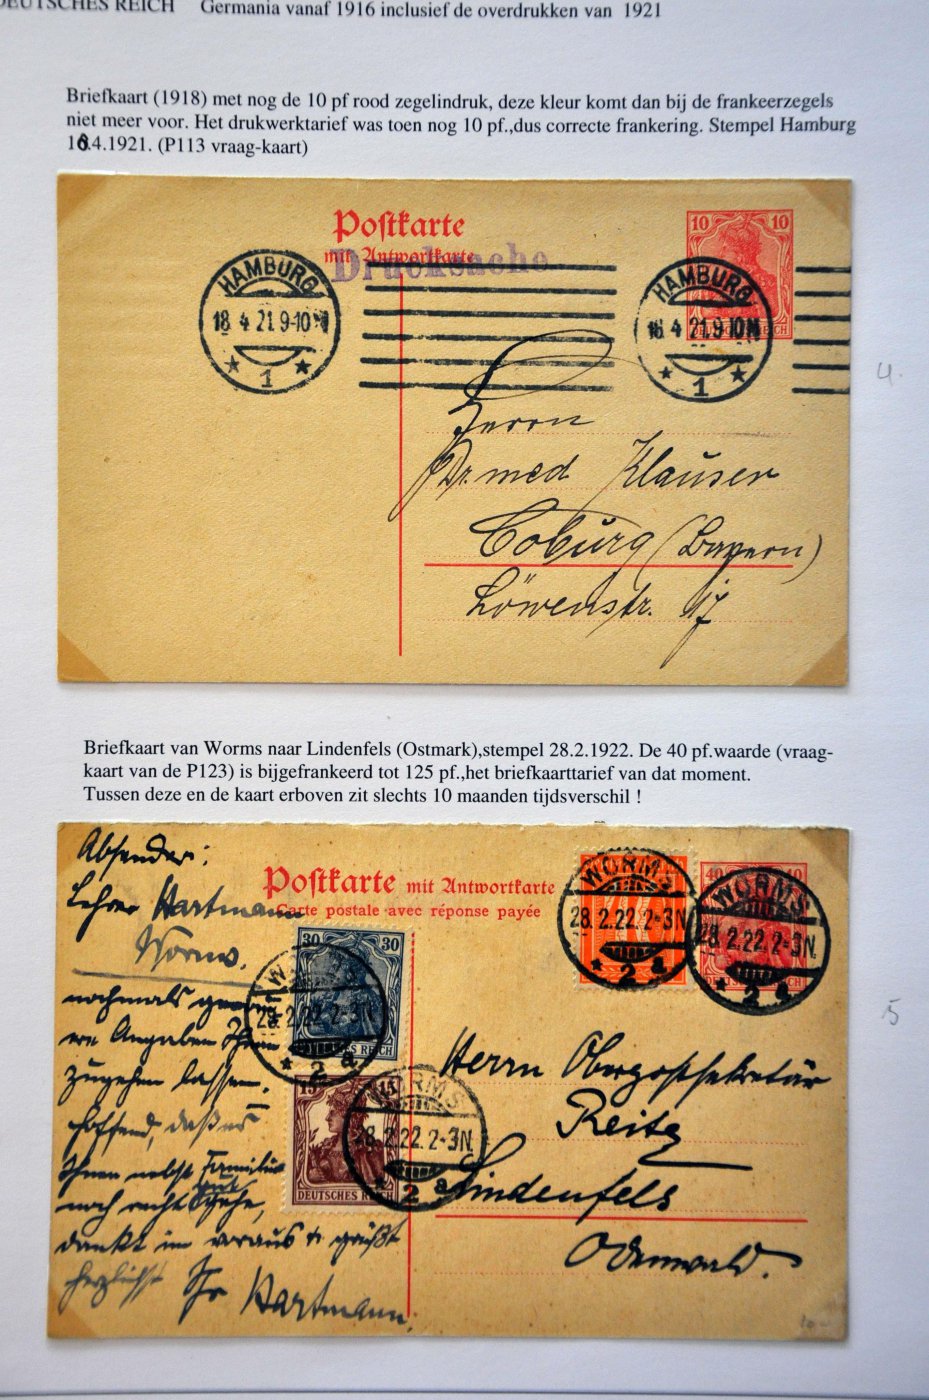 DEUTSCHES REICH Germania vanaf 1916 inclusief de overdrukken van 1921
Briefkaart (1918) met nog de 10 pf rood zegelindruk, deze kleur komt dan bij de frankeerzegels
niet meer voor. Het drukwerktarief was toen nog 10 pf.,dus correcte frankering. Stempel Hamburg
18.4.1921. (P113 vraag-kaart)
Postkarte
mit Antwortkarte
Drucksache
10 10
DEUTSCHES REICH
HAMBURG
18. 4. 21. 9-10 N
* 1 *
HAMBURG
18. 4. 21. 9-10 N
* 1 *
4.
Herrn
Dr. med Klauser
Coburg (Bayern)
Löwenstr. 17
Briefkaart van Worms naar Lindenfels (Ostmark),stempel 28.2.1922. De 40 pf.waarde (vraag-
kaart van de P123) is bijgefrankeerd tot 125 pf.,het briefkaarttarief van dat moment.
Tussen deze en de kaart erboven zit slechts 10 maanden tijdsverschil !
Postkarte mit Antwortkarte
Carte postale avec réponse payée
Absender:
Lehrer Hartmann
Worms.
nochmals
Angaben Ihnen
zugehen lassen.
Hoffend, daß es
Ihnen nebst Familie
noch recht gut gehe,
dankt im voraus & grüßt
herzlichst Ihr Hartmann.
30 30
DEUTSCHES REICH
15 15
DEUTSCHES REICH
40 40
WORMS
28. 2. 22. 2-3 N.
* 2 a
WORMS
28. 2. 22. 2-3 N.
* 2 a
WORMS
28. 2. 22. 2-3 N.
* 2 a
WORMS
28. 2. 22. 2-3 N.
* 2 a
Herrn Oberpostsekretär
Reitz
Lindenfels
Odenwald.
5